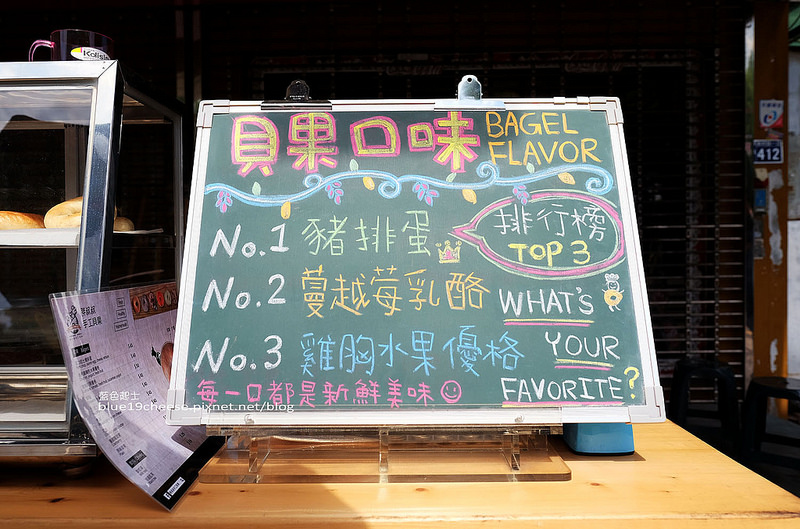 貝果口味 BAGEL FLAVOR
排行榜
TOP 3
No.1 豬排蛋
No.2 蔓越莓乳酪
No.3 雞胸水果優格
WHAT'S
YOUR
FAVORITE?
每一口都是新鮮美味
412
手工貝果
藍色起士
blue19cheese.pixnet.net/blog